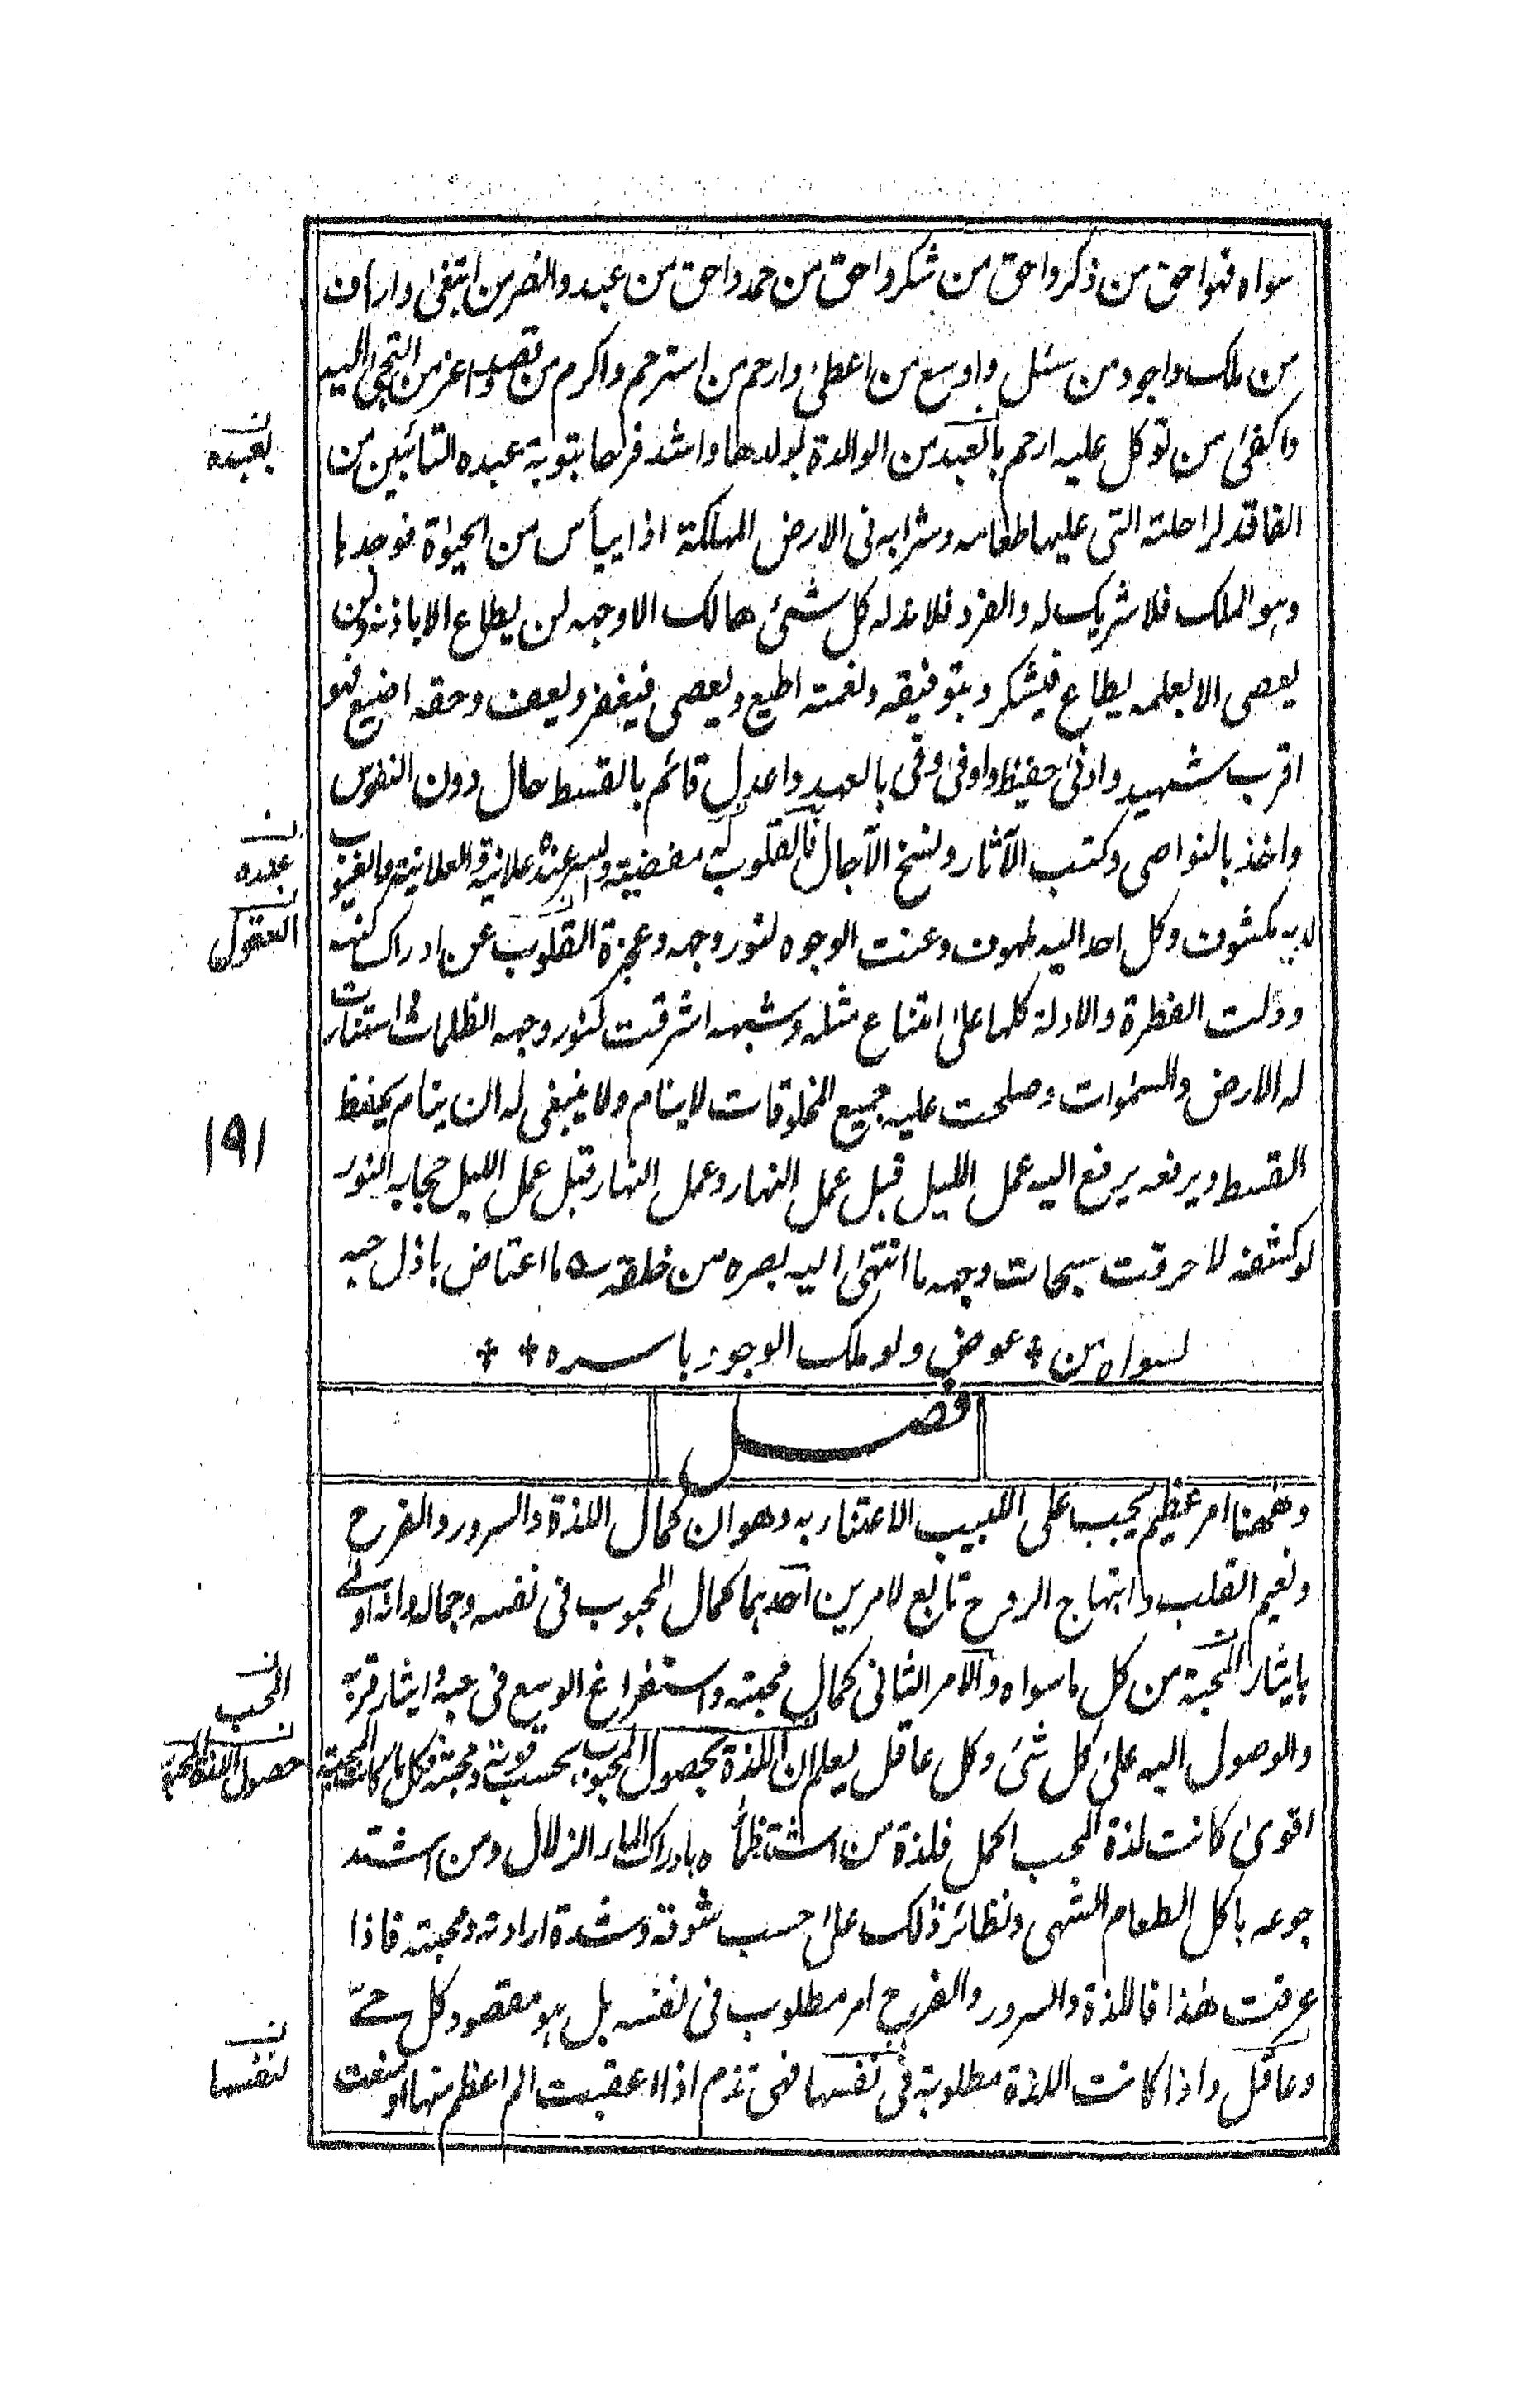 سواه فهو احق من ذكر واحق من شكر واحق من حمد واحق من عبد وانصر من ابتغى واراف
من ملك واجود من سئل واوسع من اعطى وارحم من استرحم واكرم من قصد واعز من التجى اليه
واكفى من توكل عليه ارحم بالعبد من الوالدة بولدها واشد فرحا بتوبة عبده التائبين من
بعبده
الفاقد لراحلته التى عليها طعامه وشرابه فى الارض المهلكة اذا ييأس من الحيوٰة فوجدها
وهو الملك فلا شريك له والفرد فلا ند له كل شئ هالك الا وجهه لن يطاع الا باذنه ولن
يعصى الا بعلمه يطاع فيشكر وبتوفيقه ونعمته اطيع ويعصى فيغفر ويعف وحقه اضيع فهو
اقرب شهيد وادنى حفيظ واوفى وفى بالعهد واعدل قائم بالقسط حال دون النفوس
واخذ بالنواصى وكتب الآثار ونسخ الآجال فالقلوب له مفضية والسر عنده علانية والعلانية والغيوب
عبده
لديه مكشوف وكل احد اليه ملهوف وعنت الوجوه لنور وجهه وعجزة القلوب عن ادراك كنهه
العقول
ودلت الفطرة والادلة كلها على امتناع مثله وشبهه اشرقت لنور وجهه الظلمات واستنارت
له الارض والسموات وصلحت عليه جميع المخلوقات لا ينام ولا ينبغى له ان ينام يخفض
١٩١
القسط ويرفعه يرفع اليه عمل الليل قبل عمل النهار وعمل النهار قبل عمل الليل حجابه النور
لو كشفه لاحرقت سبحات وجهه ما انتهى اليه بصره من خلقه ه ما اعتاض باذل حبه
لسواه من + عوض ولو ملك الوجود باسره + +
فصل
وههنا امر عظيم يجب على اللبيب الاعتناء به وهو ان كمال اللذة والسرور والفرح
ونعيم القلب وابتهاج الروح تابع لامرين احدهما كمال المحبوب فى نفسه وجماله وانه اولى
بايثار المحبة من كل ما سواه والامر الثانى كمال محبته واستفراغ الوسع فى حبه وايثار قربه
الحب
والوصول اليه على كل شئ وكل عاقل يعلم ان اللذة بحصول المحبوب بحسب قوة ومحبته فكلما كانت المحبة
اقوى كانت لذة المحب اكمل فلذة من اشتد ظمأه بادراك الماء الزلال ومن اشتد
جوعه باكل الطعام الشهى ونظائر ذلك على حسب شوقه وشدة ارادته ومحبته فاذا
عرفت هذا فاللذة والسرور والفرح امر مطلوب فى نفسه بل هو مقصود كل حى
وعاقل واذا كانت اللذة مطلوبة فى نفسها فهى تذم اذا اعقبت الم اعظم منها او منعت
لنفسها